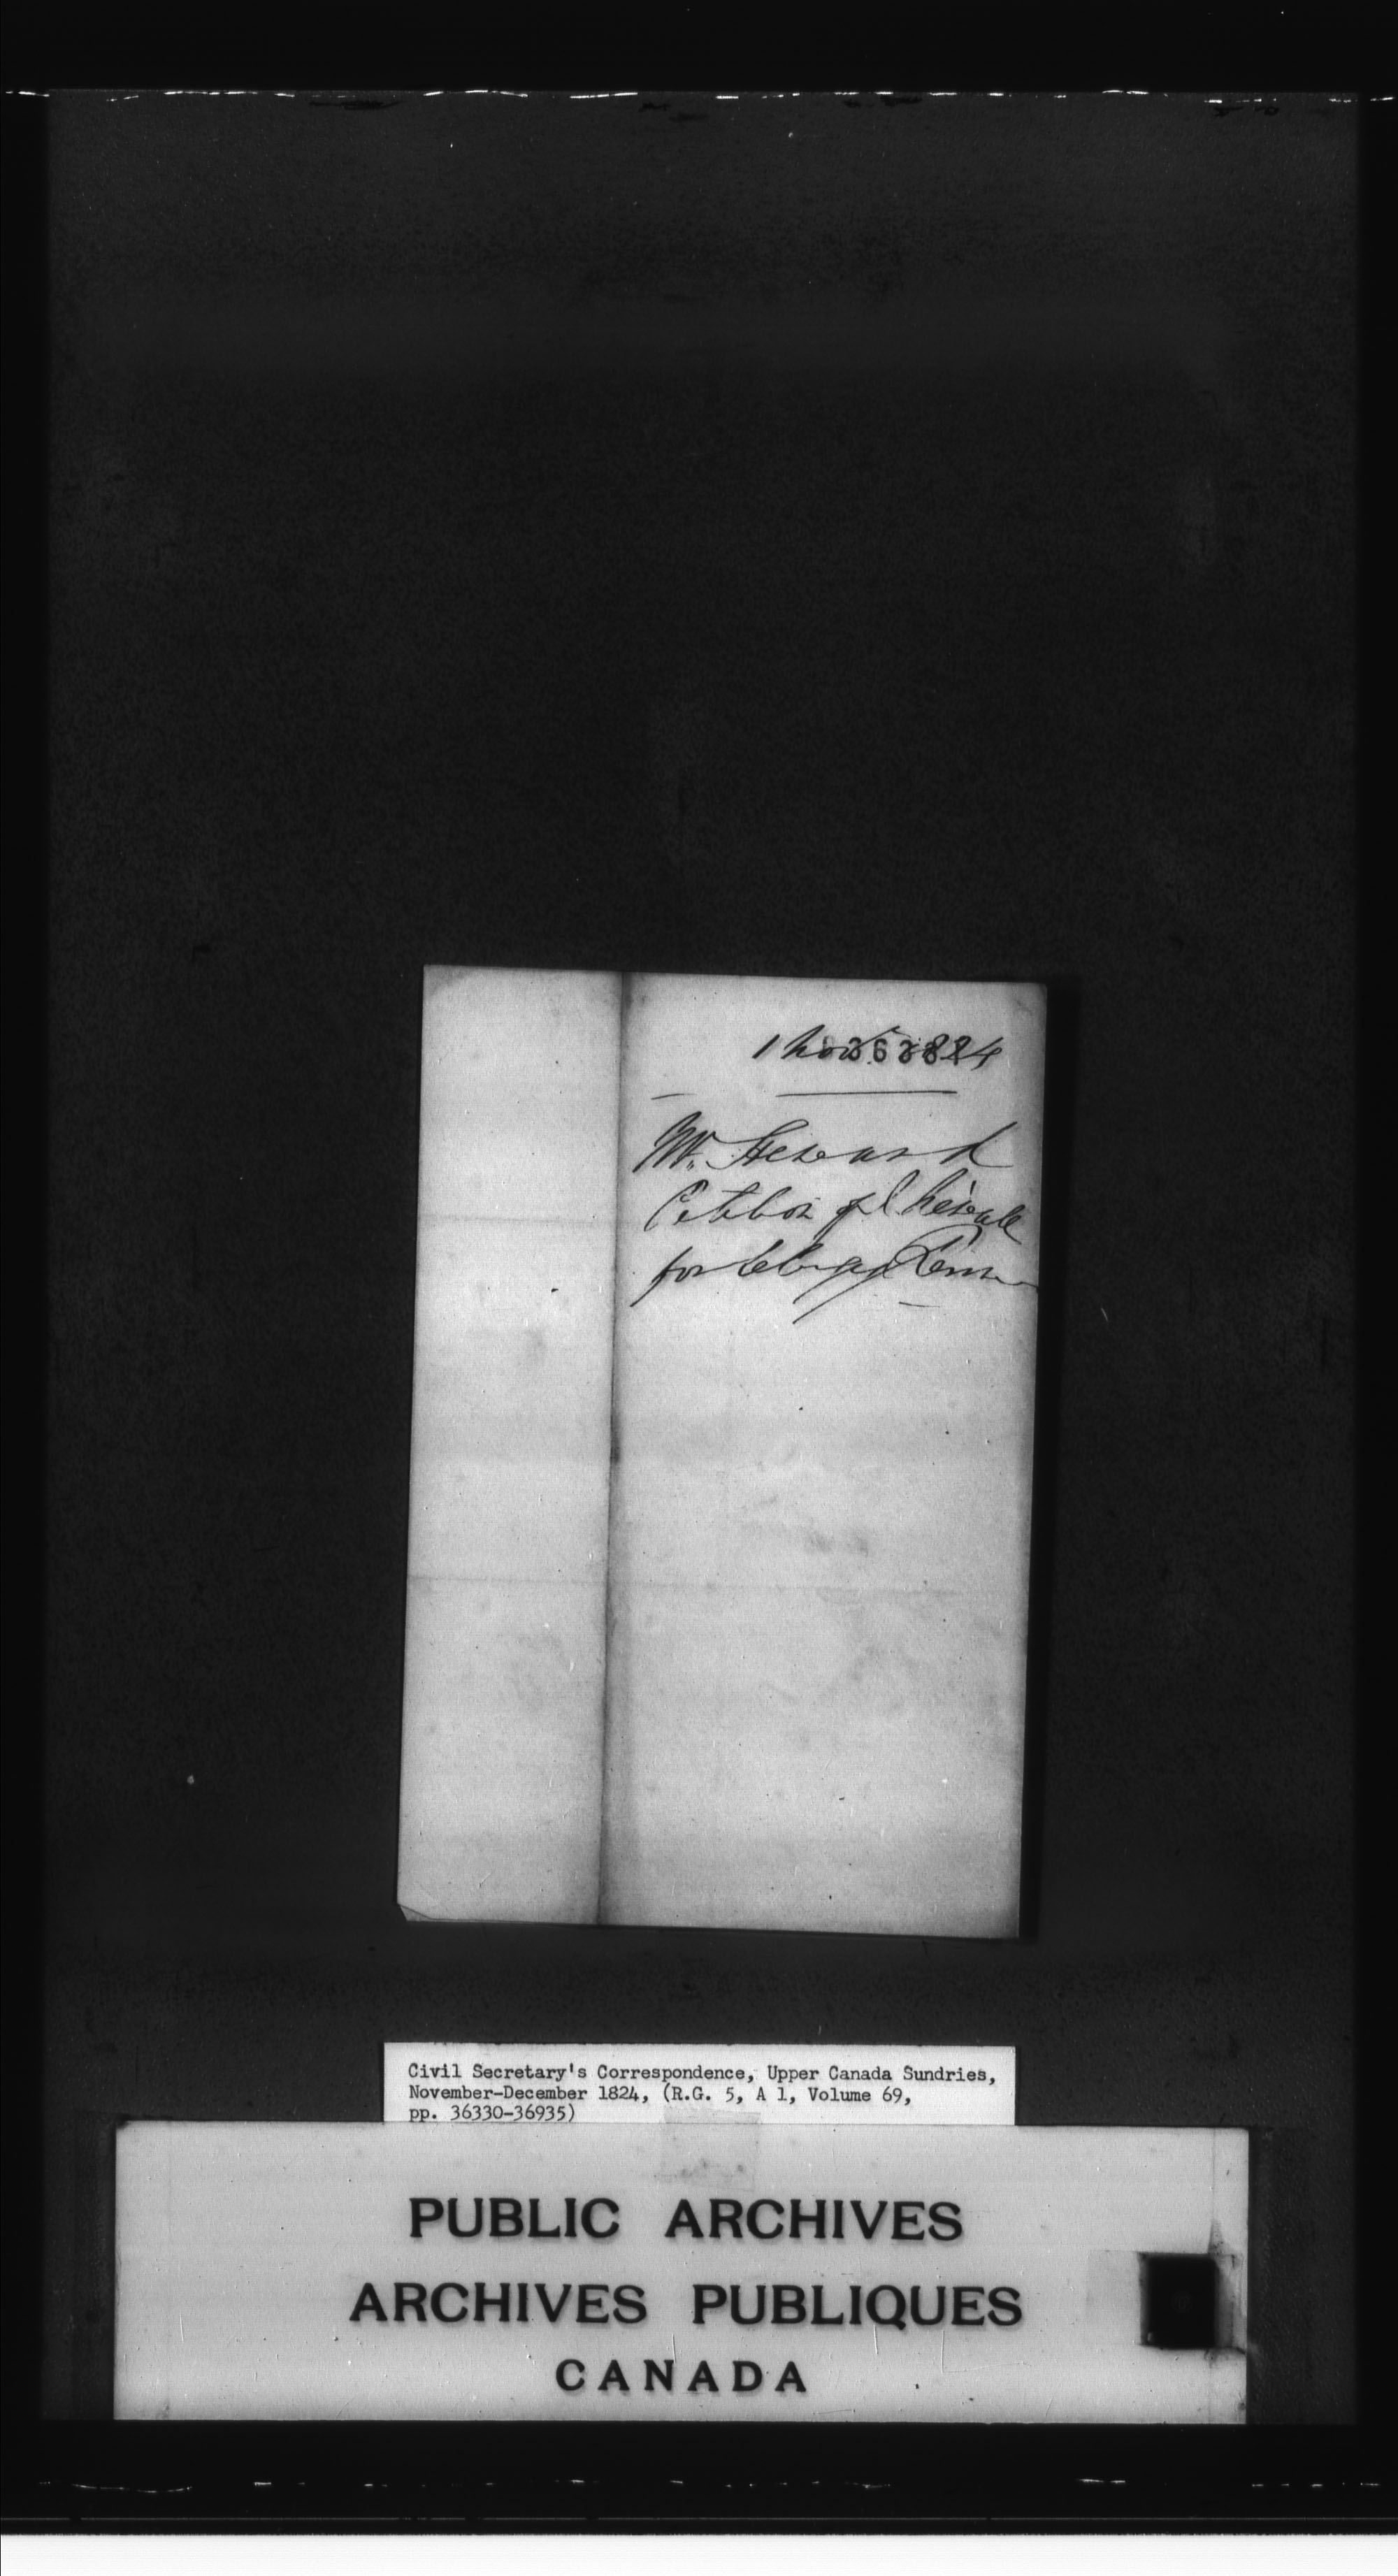 1 Nov 1824
Mr. Heward
Petition of
for Clergy
Civil Secretary's Correspondence, Upper Canada Sundries,
November-December 1824, (R.G. 5, A 1, Volume 69,
pp. 36330-36935)
PUBLIC ARCHIVES
ARCHIVES PUBLIQUES
CANADA